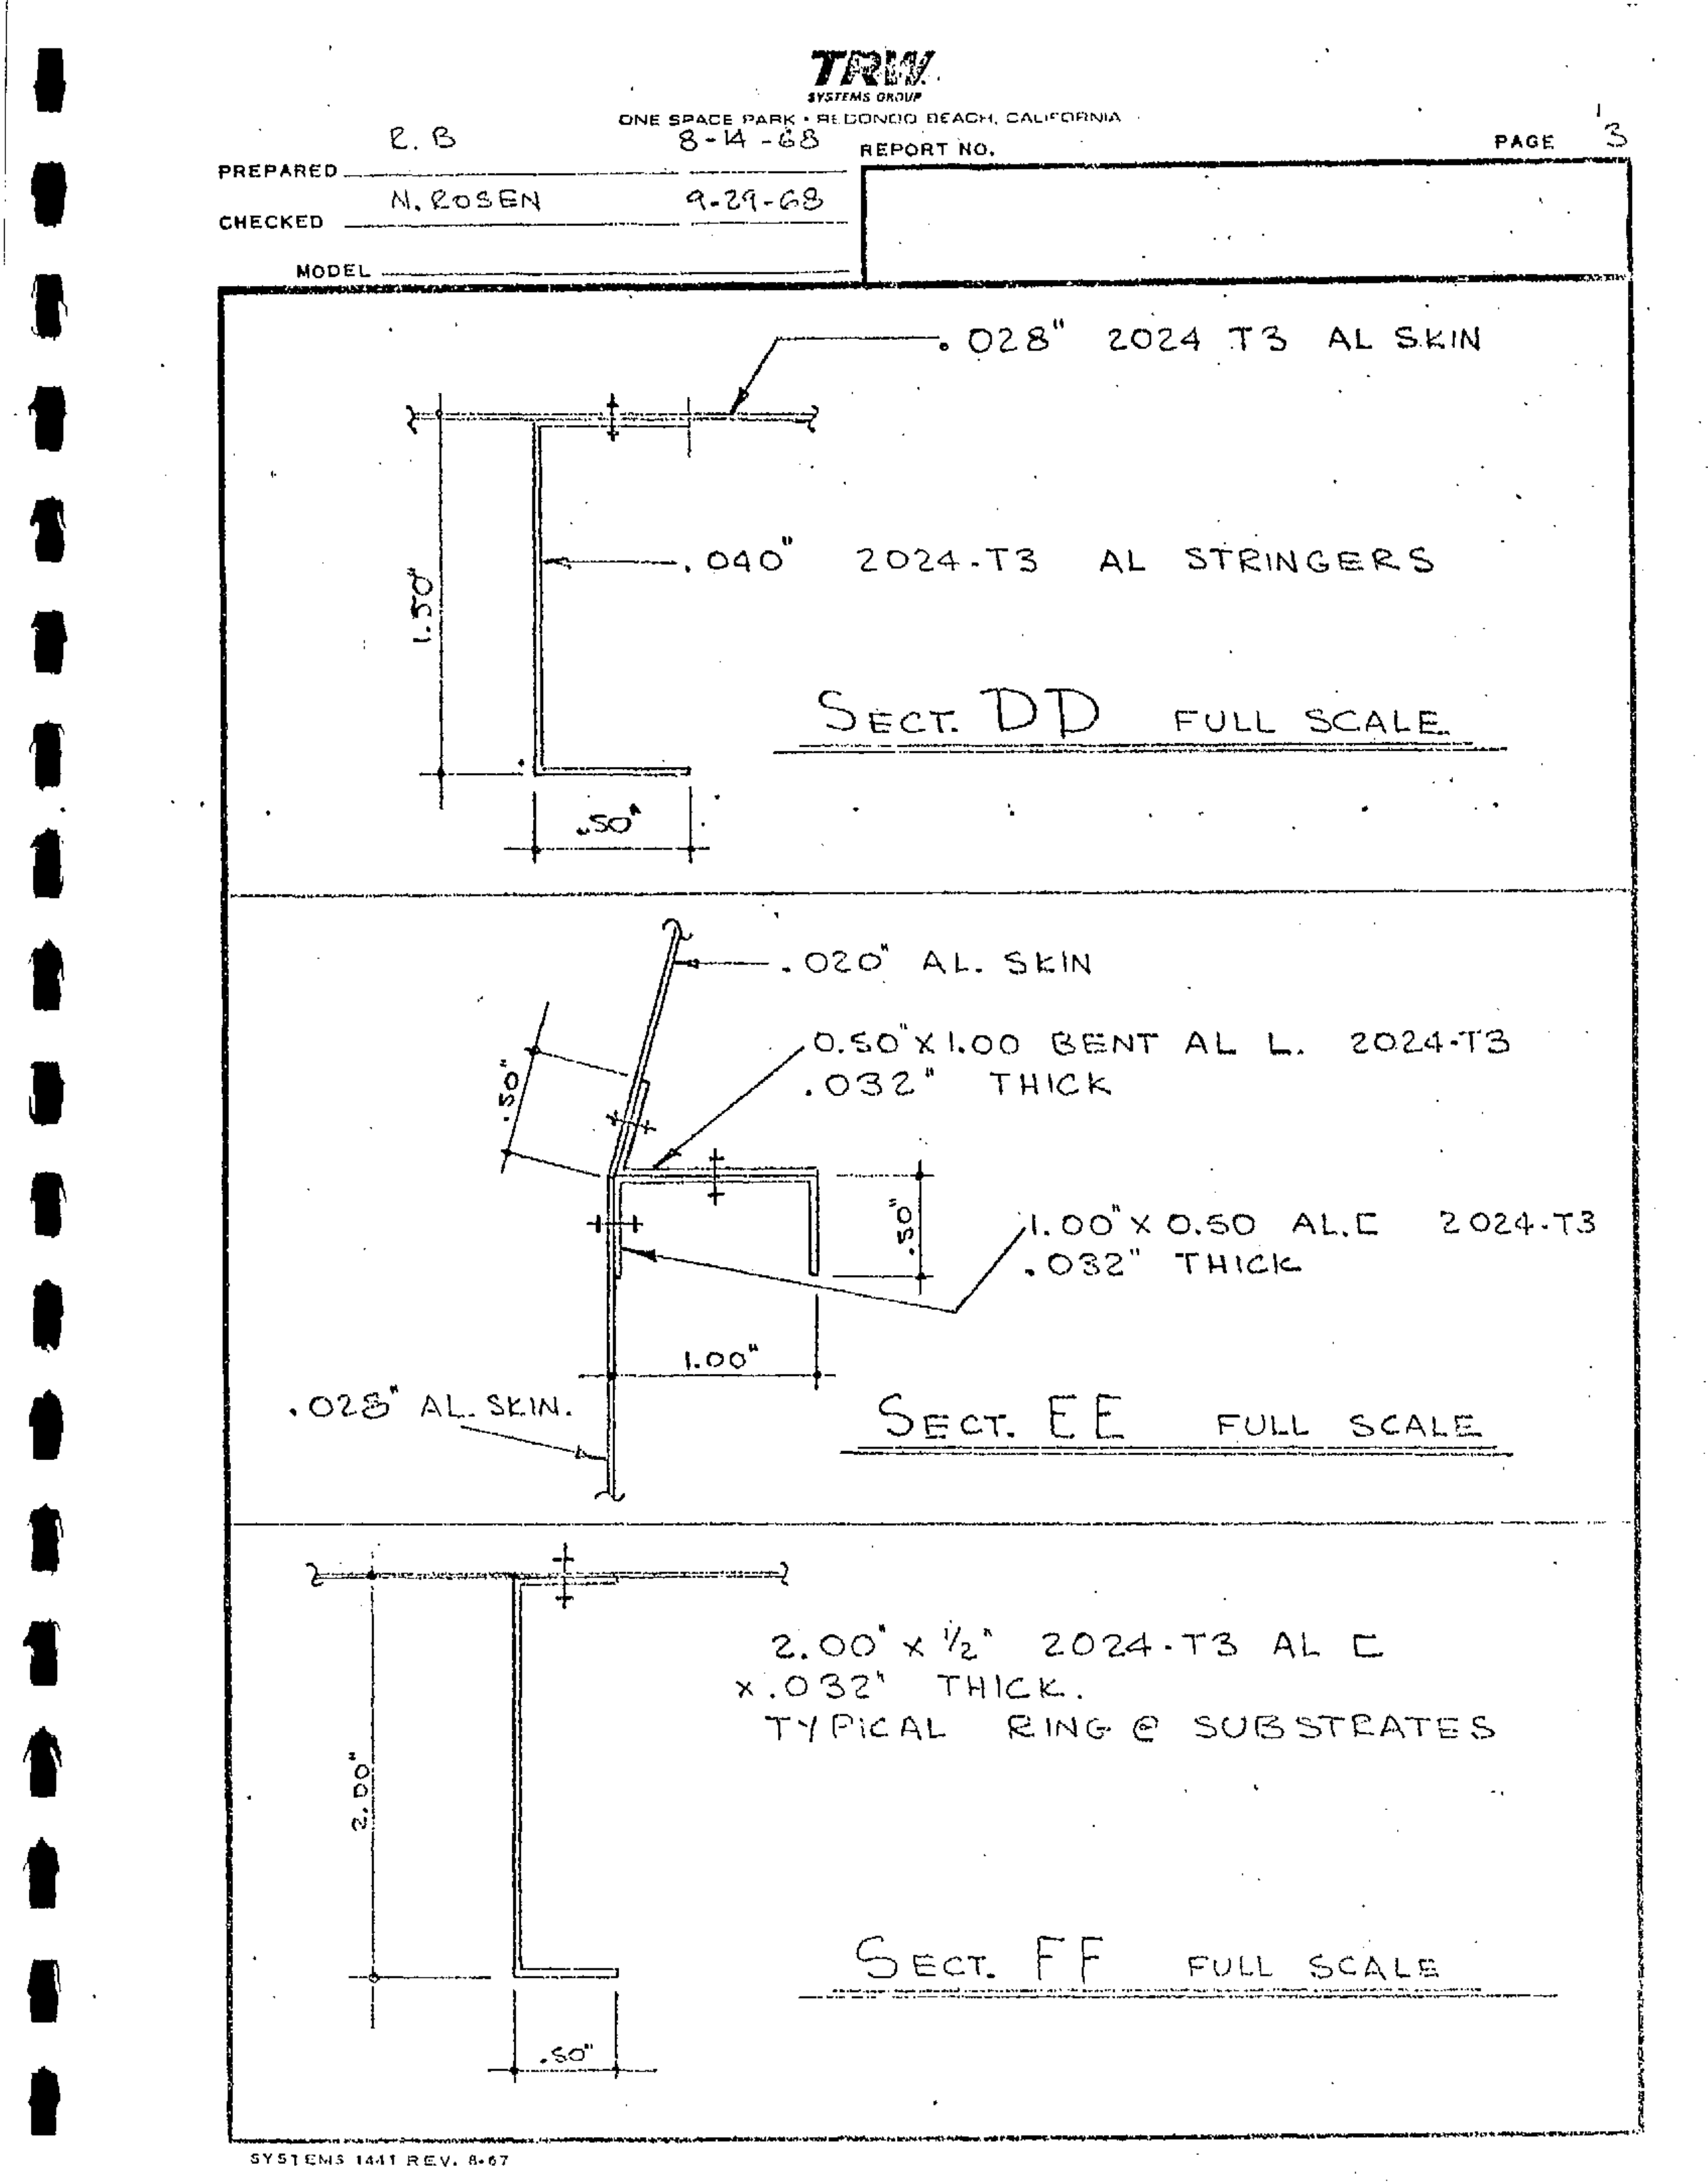 TRW
SYSTEMS GROUP
ONE SPACE PARK • REDONDO BEACH, CALIFORNIA
PREPARED R. B 8-14-68 REPORT NO. PAGE 3
CHECKED N. ROSEN 9-29-68
MODEL
.028" 2024 T3 AL SKIN
1.50"
.040" 2024-T3 AL STRINGERS
SECT. DD FULL SCALE
.50"
.020" AL. SKIN
.50"
0.50"X1.00 BENT AL L. 2024-T3
.032" THICK
.50"
1.00"X0.50 AL.C 2024-T3
.032" THICK
1.00"
.028" AL. SKIN.
SECT. EE FULL SCALE
2.00" x 1/2" 2024-T3 AL C
x .032" THICK.
TYPICAL RING @ SUBSTRATES
2.00"
SECT. FF FULL SCALE
.50"
SYSTEMS 1441 REV. 8-67